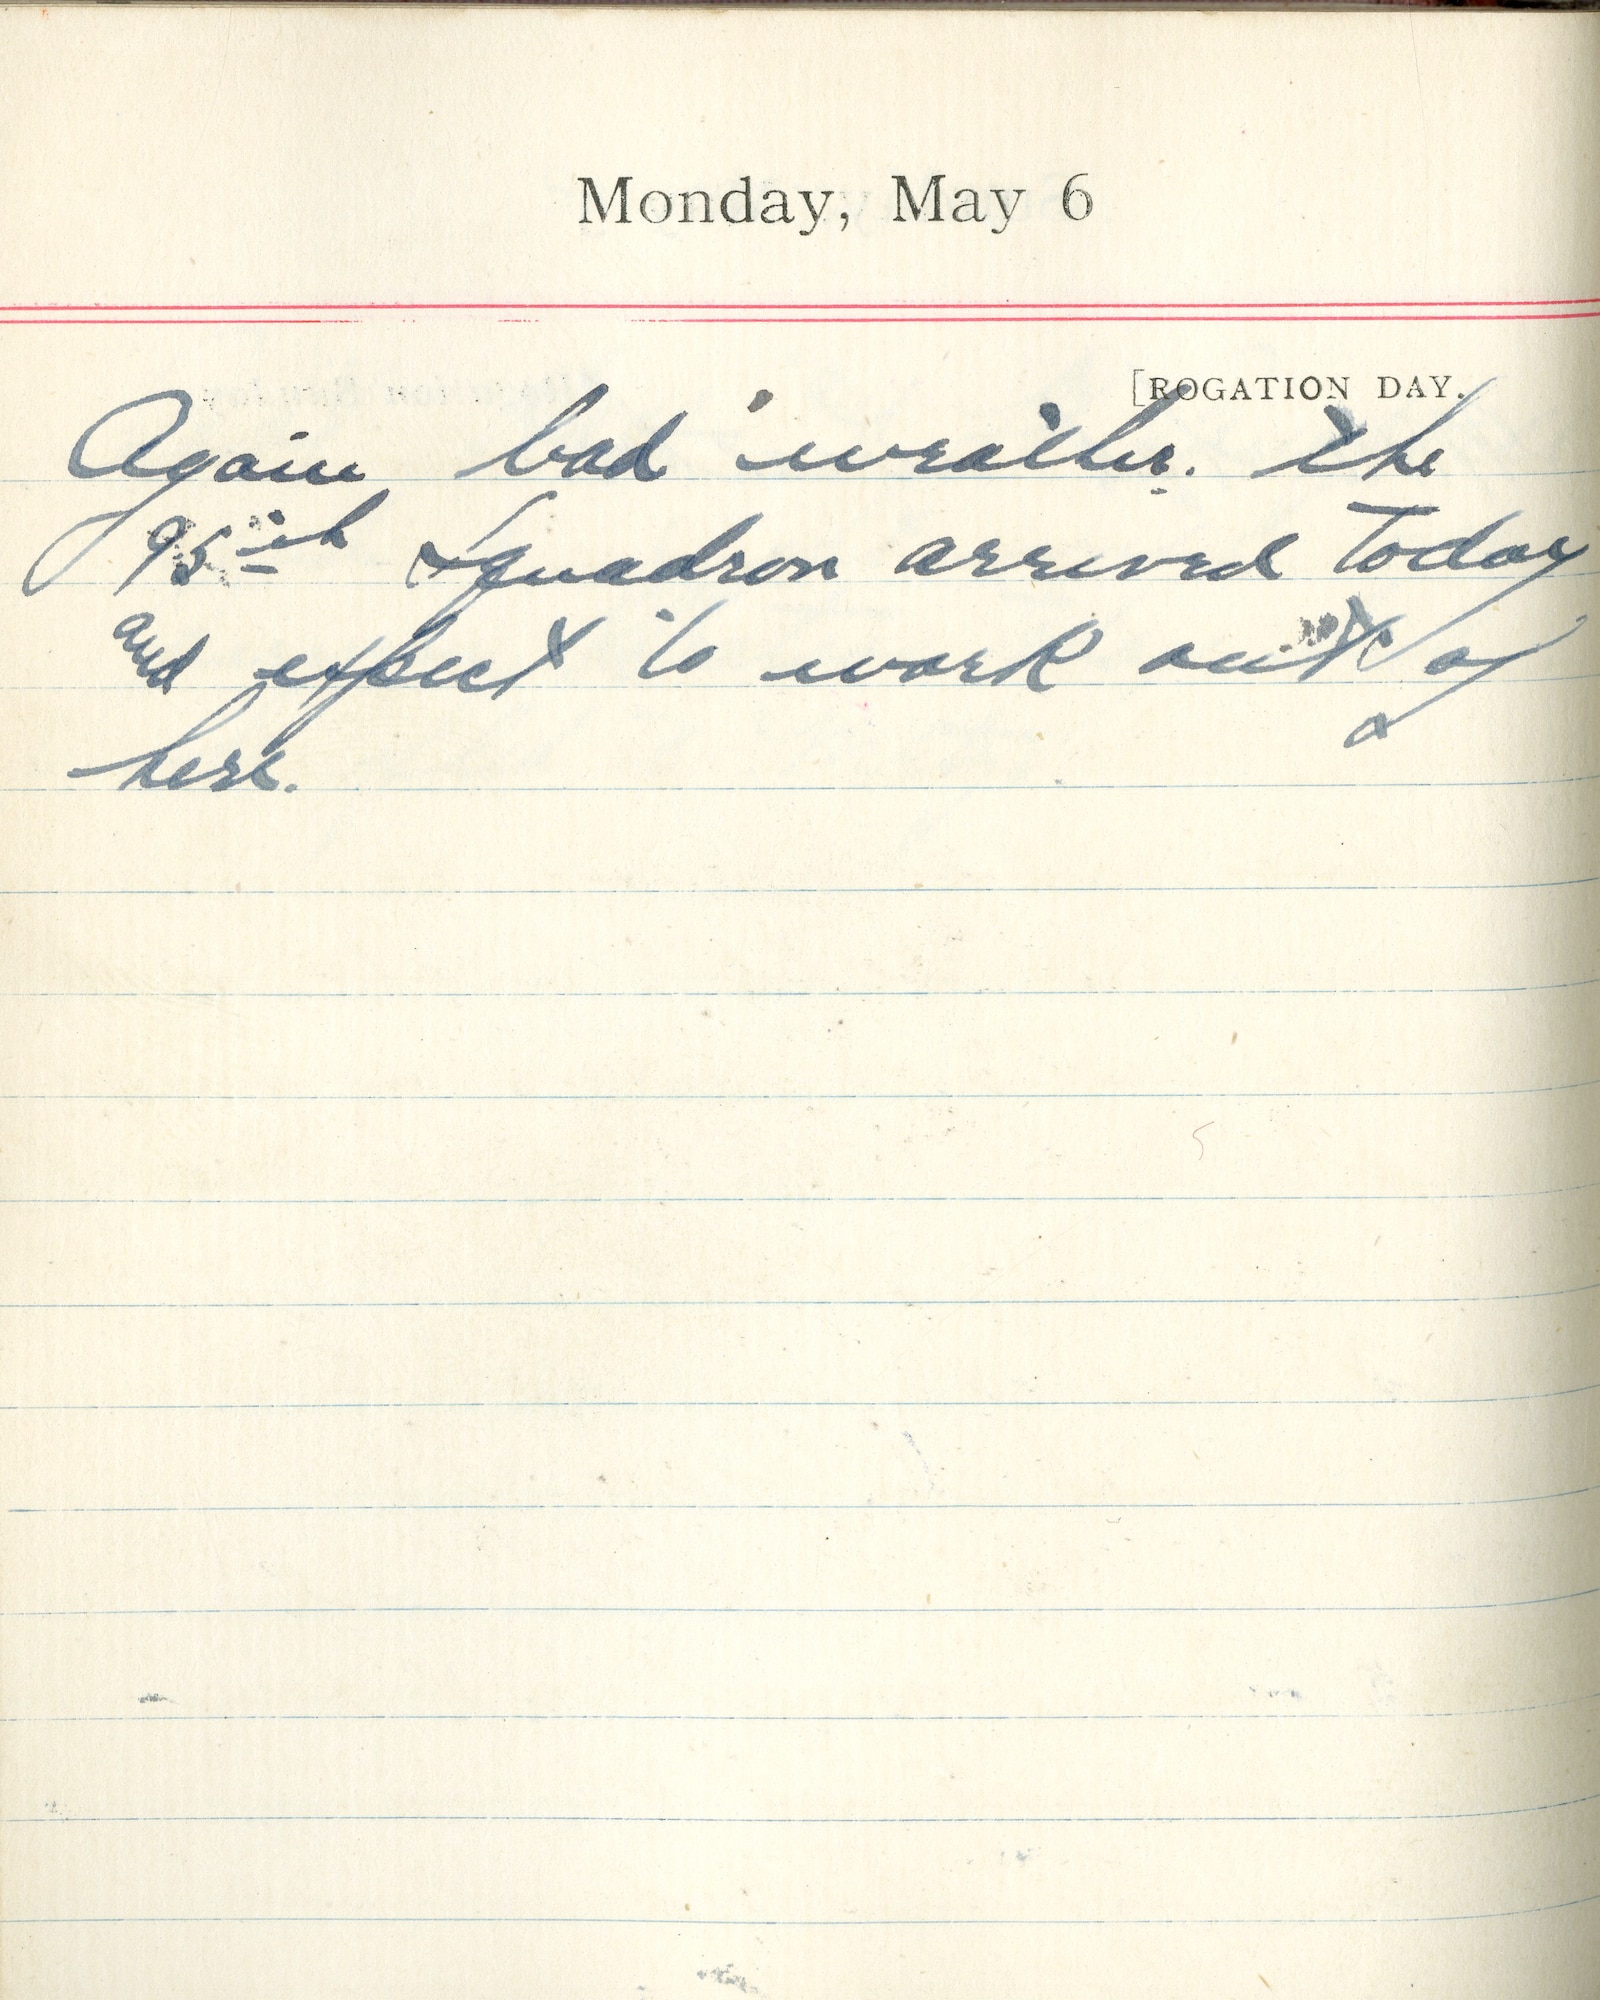 Monday, May 6
[ROGATION DAY.
Again bad weather. The
95th Squadron arrived today
and expect to work out of
here.